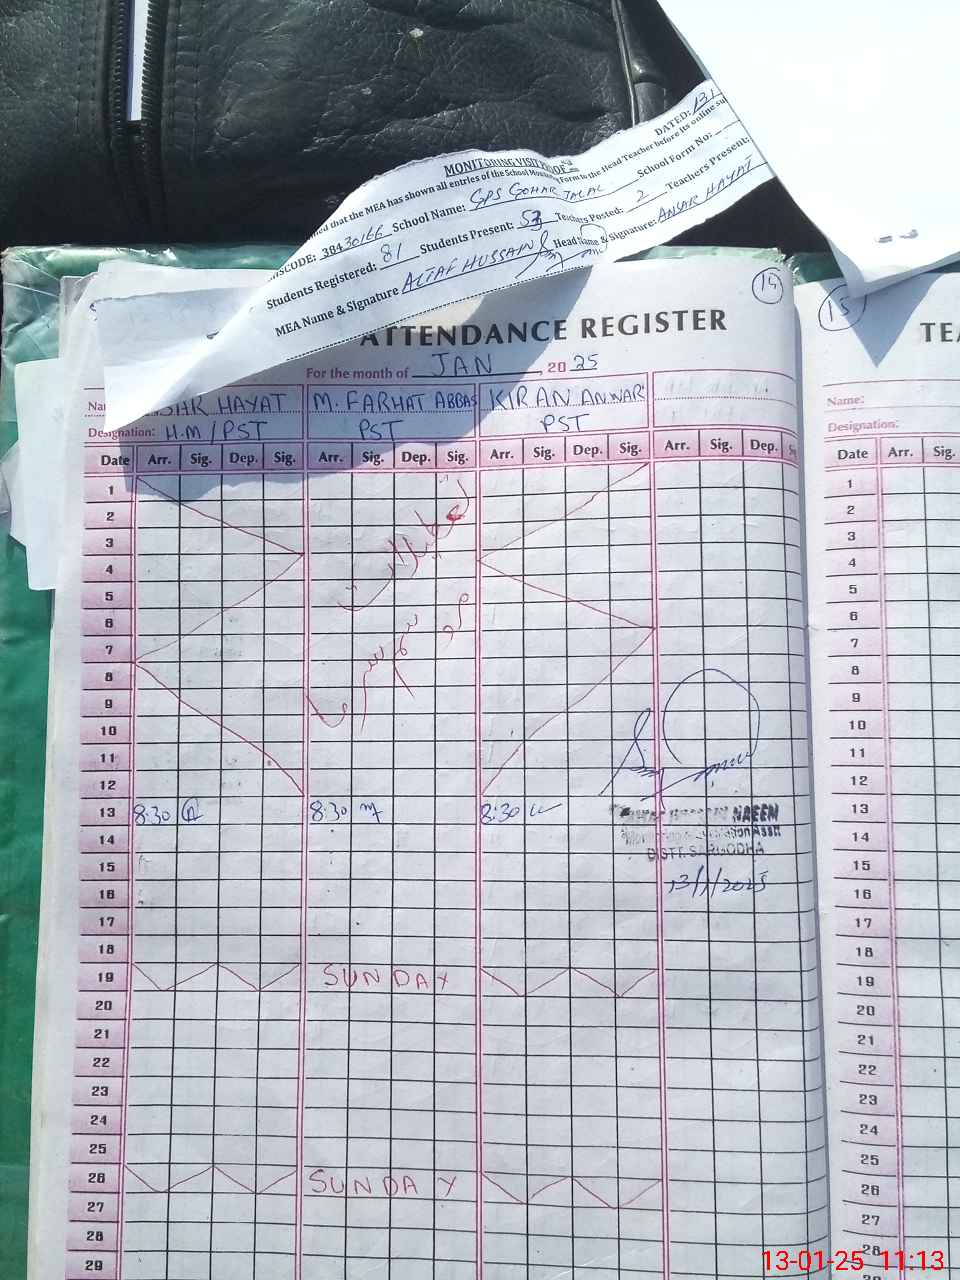 DATED: 131
MONITORING VISIT PROOF
that the MEA has shown all entries of the School Monitoring Form to the Head Teacher before its online su
38430166 School Name: GPS GOHAR JALAL School Form No:
Students Registered: 81 Students Present: 53 Teachers Posted: 2 Teachers Present:
MEA Name & Signature ALTAF HUSSAIN Head Name & Signature: ANSAR HAYAT
14
ATTENDANCE REGISTER
For the month of JAN 2025
HAYAT M. FARHAT ABBAS KIRAN ANWAR
Designation: H.M/PST PST PST
Date Arr. Sig. Dep. Sig. Arr. Sig. Dep. Sig. Arr. Sig. Dep. Sig. Arr. Sig. Dep.
1
2
3
4
5
6
7
8
9
10
11
12
13 8:30 8:30 8:30
NAEEM
14
DISTT. SARGODHA
15
13/1/2025
16
17
18
19 SUNDAY
20
21
22
23
24
25
26 SUNDAY
27
28
29
15
TEA
Name:
Designation:
Date Arr. Sig.
1
2
3
4
5
6
7
8
9
10
11
12
13
14
15
16
17
18
19
20
21
22
23
24
25
26
27
28
13-01-25 11:13